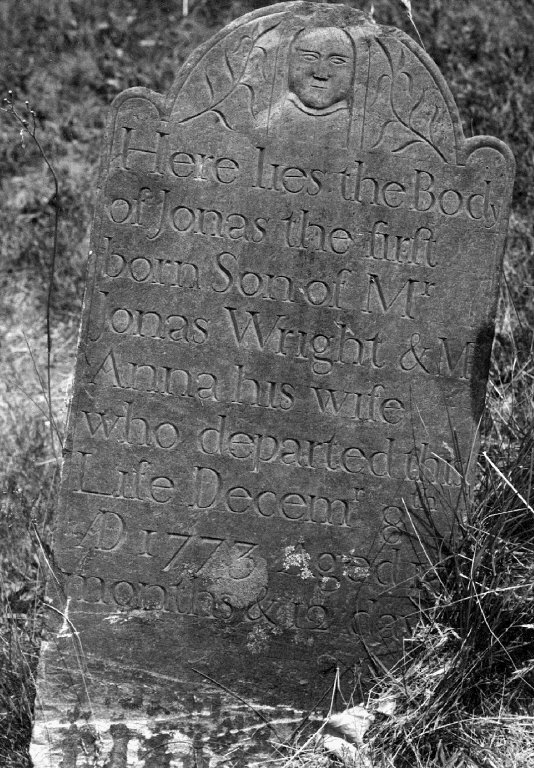 Here lies the Body
of Jonas the firſt
born Son of Mr
Jonas Wright & M
Anna his wife
who departed this
Life Decemr 8th
AD 1773 Aged
months & 12 days